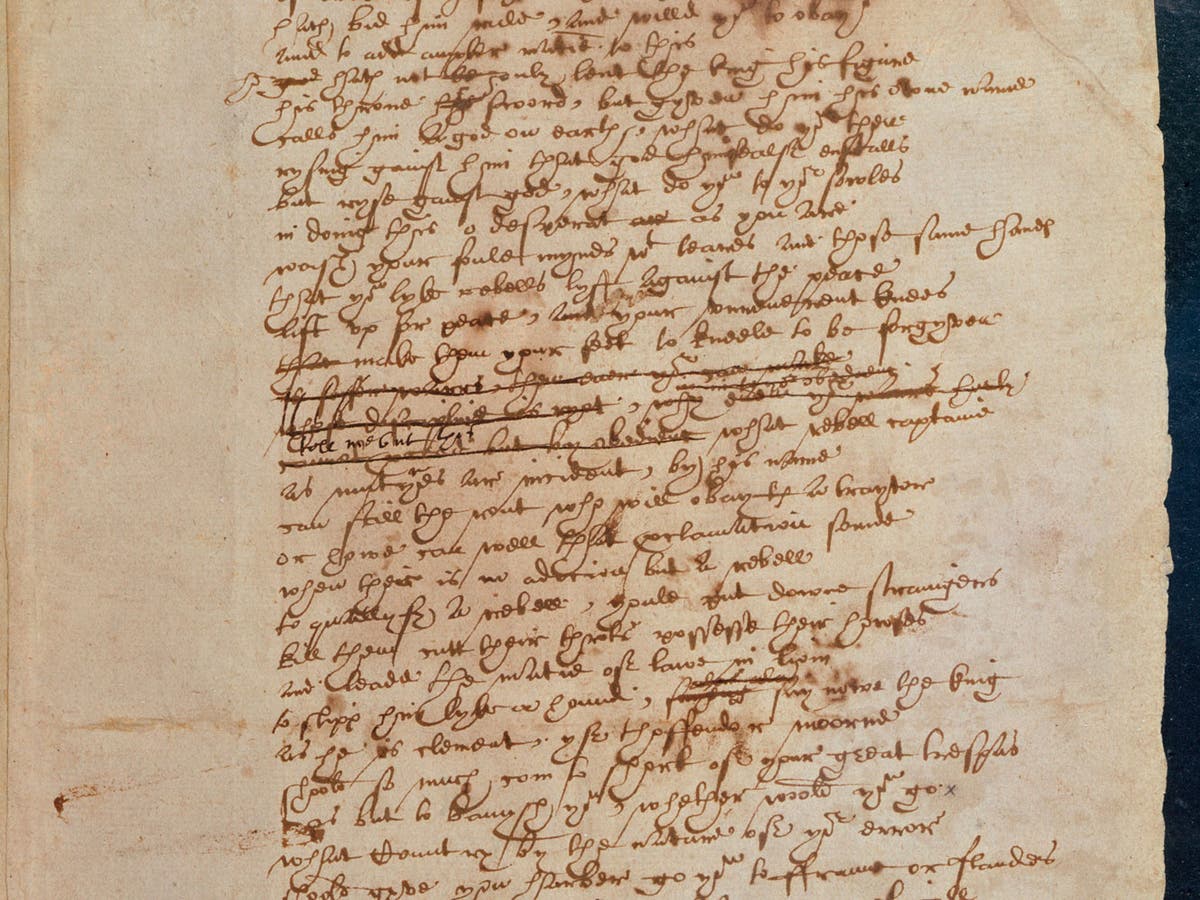 hath bid him rule, and willd yu to obay
and to add ampler matie to this
god hath not le only lent the king his figure
his throne his sword, but gyven him his owne name
calls him a god on earth, what do yu then
rysing gainst him that god himsealf enstalls
but ryse gainst god, what do yu to yor sowles
in doing this o desperat ar as you are
wash your foule mynds wt teares and those same handes
that yu lyke rebells lyft against the peace
lift vp for peace, and your vnreuerent knees
that make them your feet to kneele to be forgyven
is safer warrs, then euer yu can make
in in to yor obedienc
whose discipline is ryot, why euen yor warrs hurly
tell me but this
cannot proceed but by obedienc what rebell captaine
as mutynes ar incident, by his name
can still the rout who will obay th a traytor
or howe can well that proclamation sounde
when ther is no adicion but a rebell
to quallyfy a rebell, youle put downe straingers
kill them cutt their throts possesse their howses
and leade the matie of lawe in liom
alas alas
to slipp him lyke a hound, sayeng say nowe the king
as he is clement, yf thoffendor moorne
shoold so much com to short of your great trespas
as but to banysh yu, whether woold yu go
what Country by the nature of yor error
shoold gyve you harber go yu to ffraunc or flanders